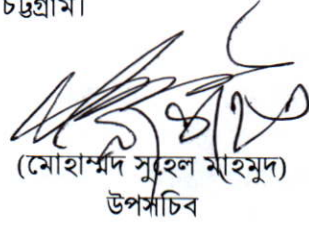 চট্টগ্রাম।
(মোহাম্মদ সুহেল মাহমুদ)
উপসচিব